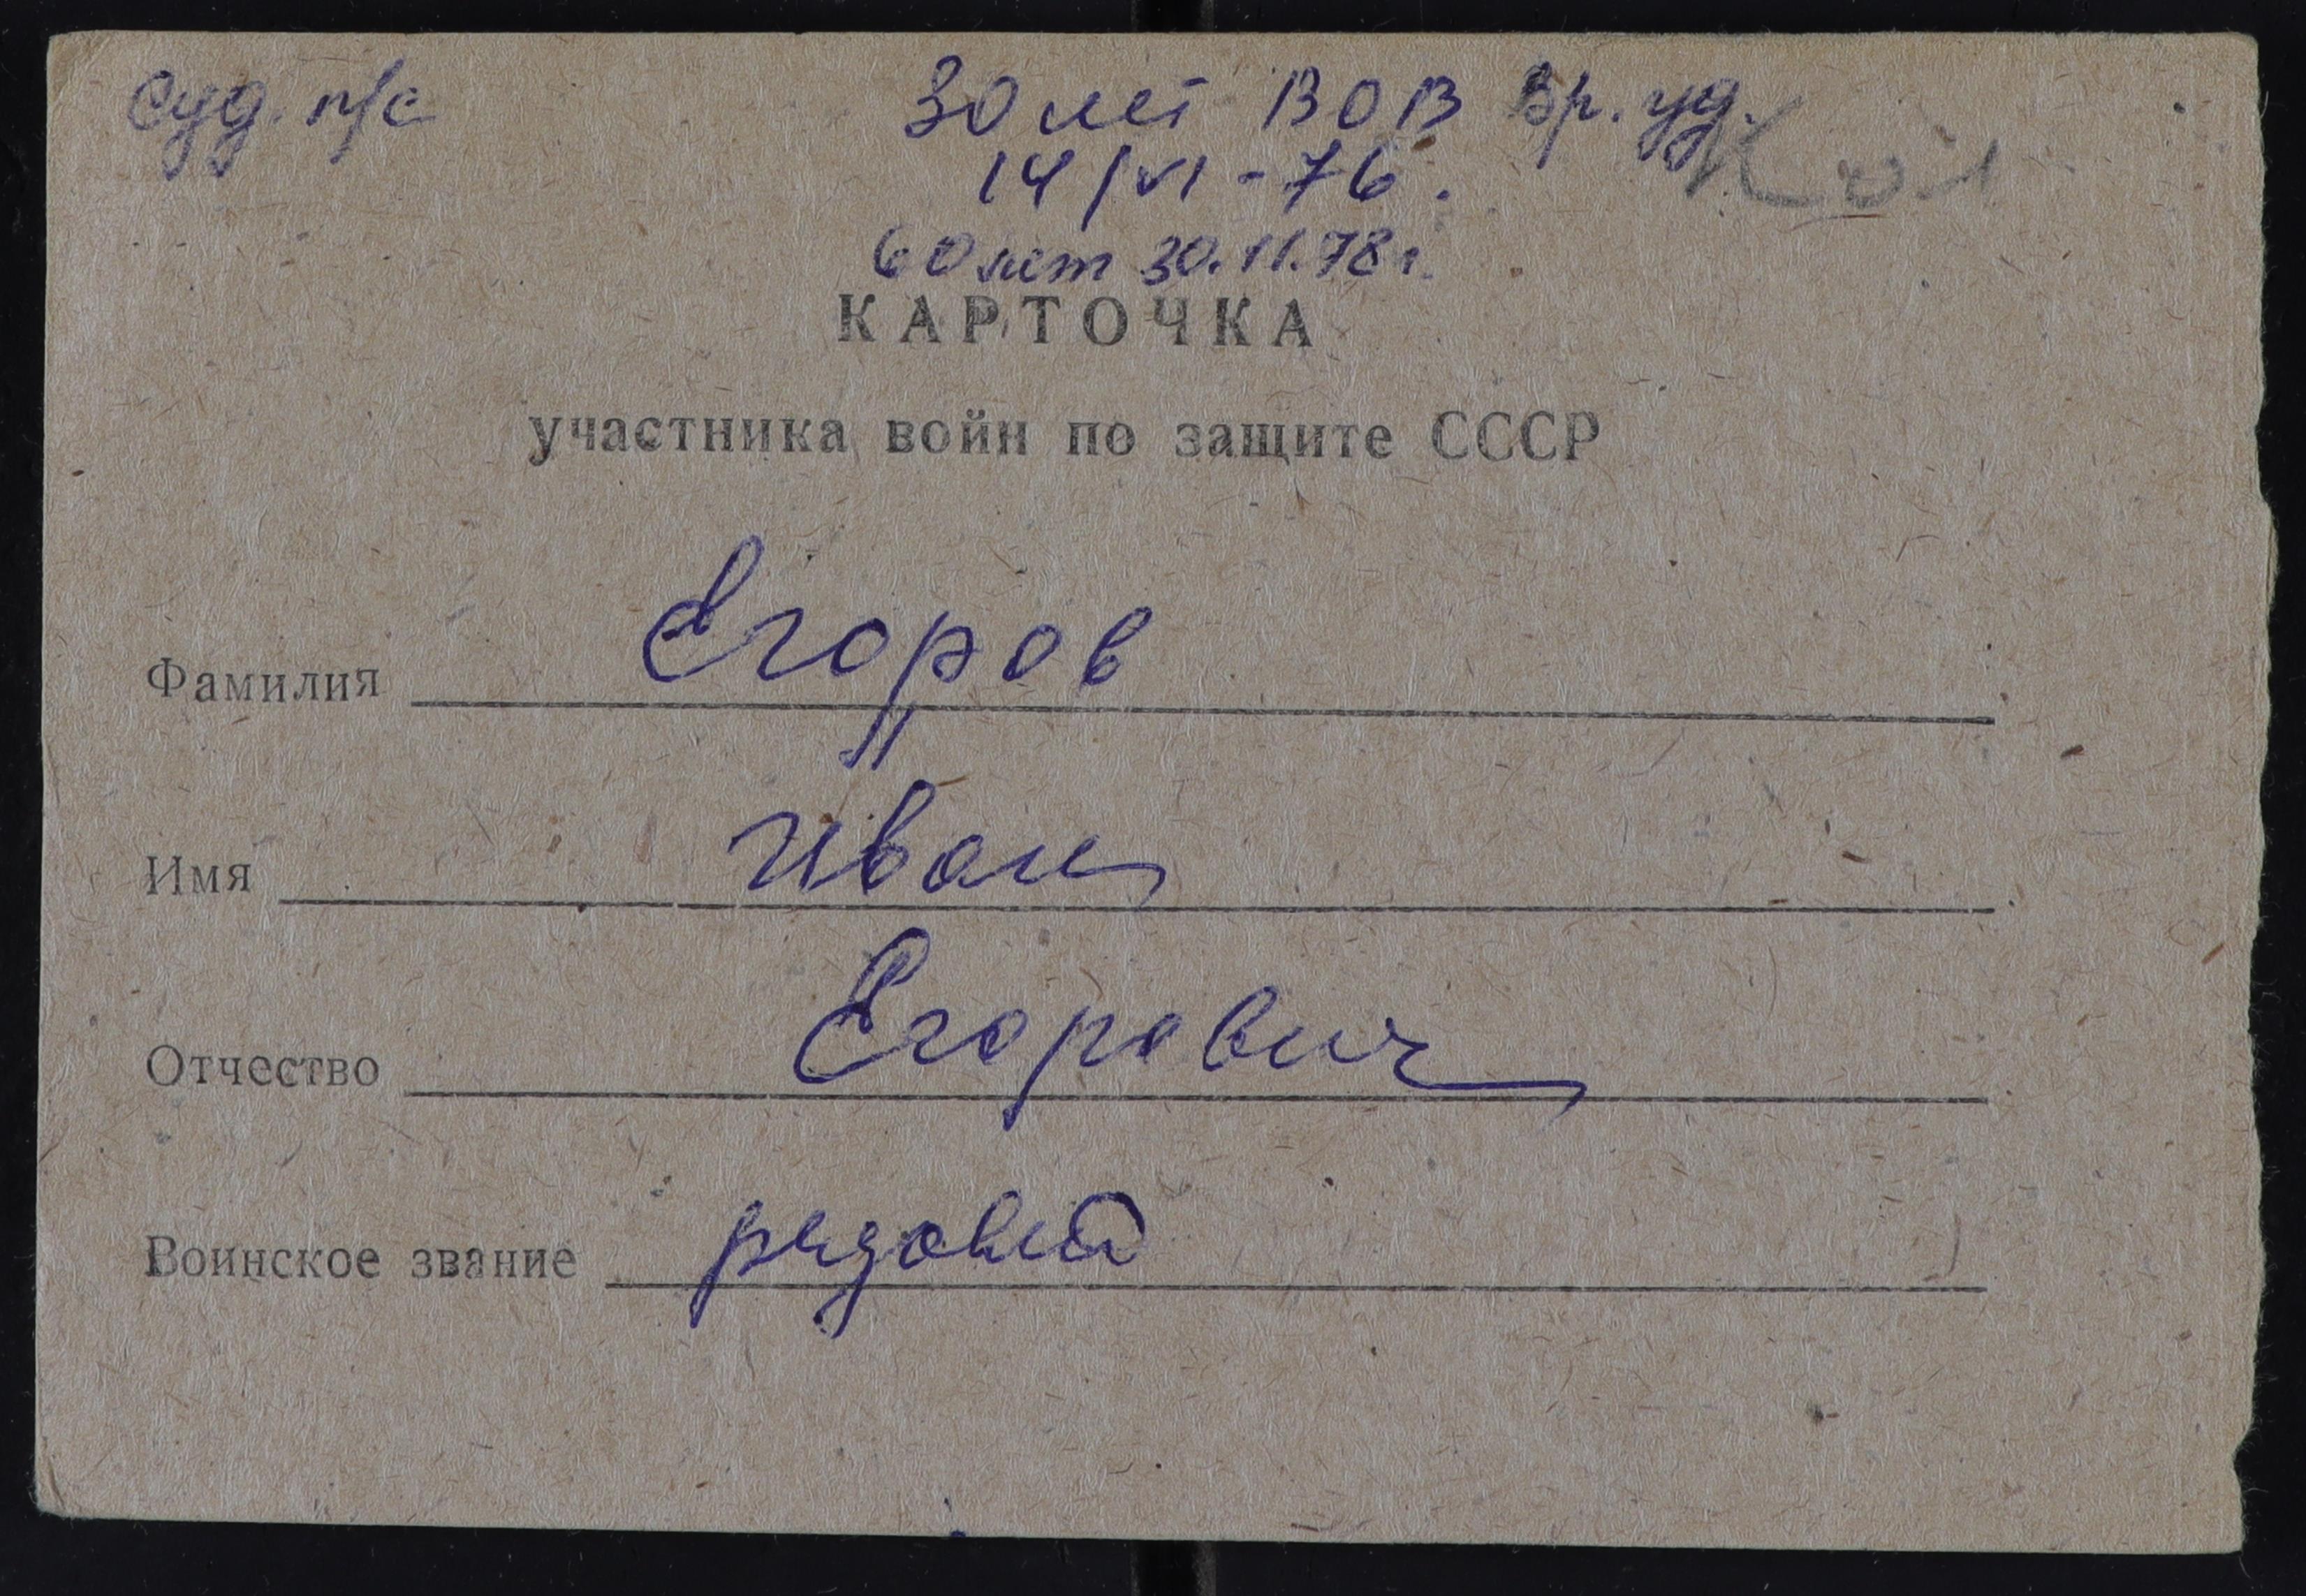 суд. п/с
30 лет ВОВ вр. уд.
14/VI-76.
60 лет 30.11.78 г.
КАРТОЧКА
участника войн по защите СССР
Фамилия Егоров
Имя Иван
Отчество Егорович
Воинское звание рядовой